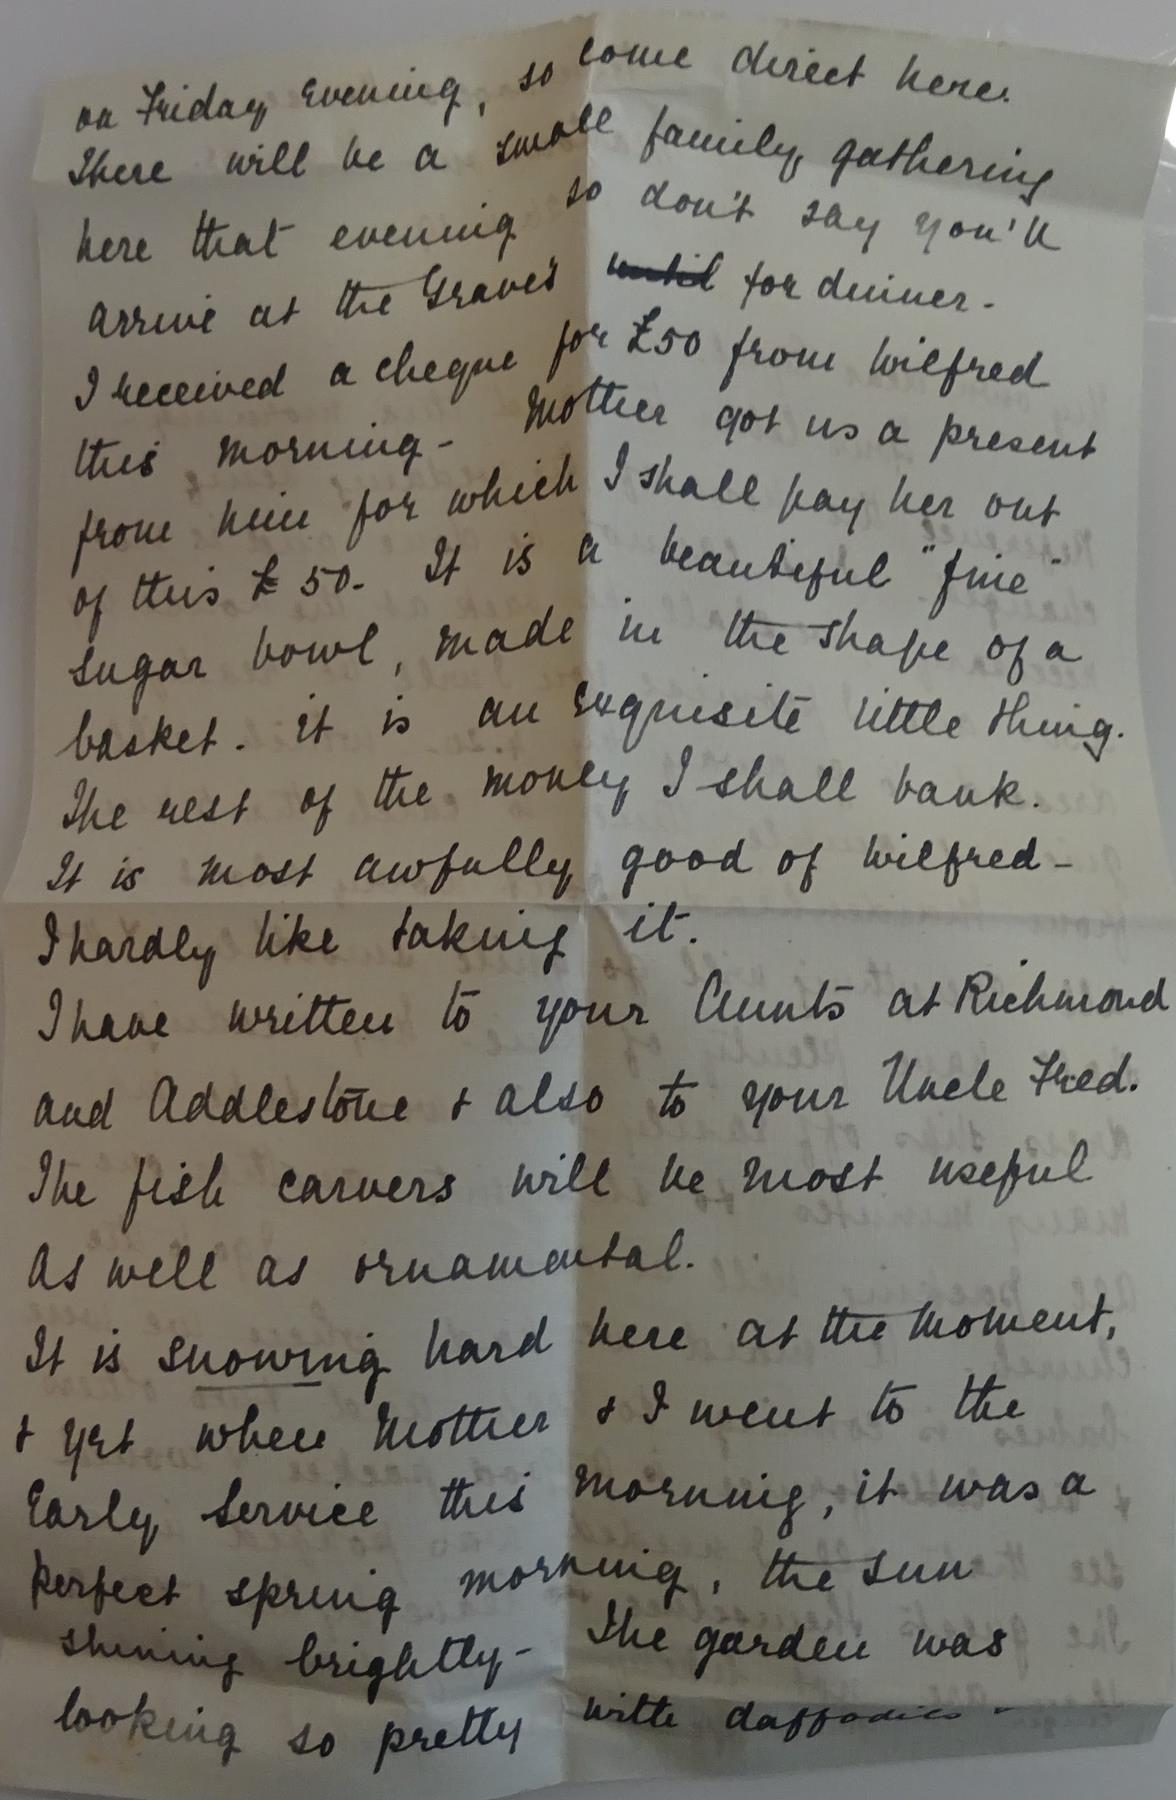 on Friday Evening, so come direct here.
There will be a small family gathering
here that evening so don't say you'll
arrive at the Graves for dinner -
I received a cheque for £50 from Wilfred
this morning - Mother got us a present
from him for which I shall pay her out
of this £50. It is a beautiful "fine"
sugar bowl, made in the shape of a
basket. it is an exquisite little thing.
The rest of the money I shall bank.
It is most awfully good of Wilfred -
I hardly like taking it.
I have written to your Aunts at Richmond
and Addlestone & also to your Uncle Fred.
The fish carvers will be most useful
as well as ornamental.
It is snowing hard here at the moment,
& yet when Mother & I went to the
Early Service this morning, it was a
perfect spring morning, the sun
shining brightly - The garden was
looking so pretty with daffodils -